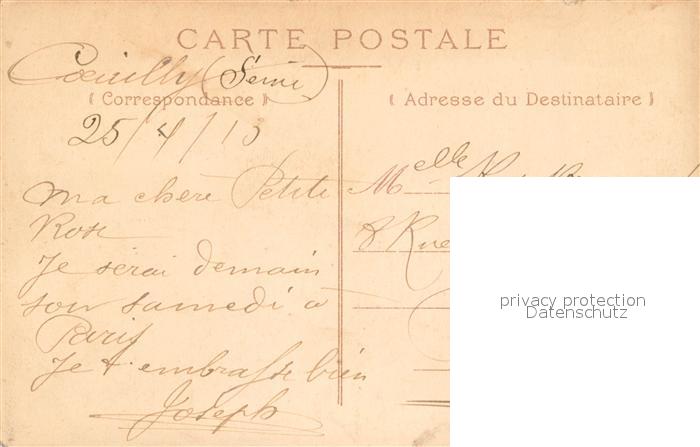 CARTE POSTALE
Coeuilly (Seine)
( Correspondance )
( Adresse du Destinataire )
25/4/13
Melle
Ma chère Petite
Rose
8 Rue
Je serai demain
soir samedi à
Paris
Je t'embrasse bien
Joseph
privacy protection
Datenschutz